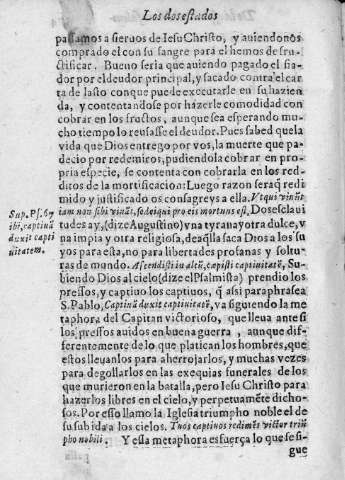 Los dos estados
passamos a sieruos de Iesu Christo, y auiendonos
comprado el con su sangre para el hemos de fru-
ctificar. Bueno seria que auiendo pagado el fia-
dor por el deudor principal, y sacado contra el car
ta de lasto con que puede executarle en su hazien
da, y contentandose por hazerle comodidad con
cobrar en los fructos, aunque sea esperando mu-
cho tiempo lo reusasse el deudor. Pues sabed que la
vida que Dios entrego por vos, la muerte que pa-
decio por redemiros, pudiendola cobrar en pro-
pria especie, se contenta con cobrarla en los red-
ditos de la mortificacion: Luego razon será q̃ redi
mido y justificado os consagreys a ella. Vt qui viuũt
iam non sibi viuãt, sed ei qui pro eis mortuus est, Dos esclaui
tudes ay, (dize Augustino) vna tyrana y otra dulce, v
na impia y otra religiosa, de aq̃lla saca Dios a los su
yos para esta, no para libertades profanas y soltu-
ras de mundo. Ascendisti in altũ, cepisti captiuitatẽ, Su-
biendo Dios al cielo (dize el Psalmista) prendio los
pressos, y captiuo los captiuos, q̃ assi paraphrasea
S. Pablo, Captiuã duxit captiuitatẽ, va siguiendo la me
taphora del Capitan victorioso, que lleua ante si
los pressos auidos en buena guerra, aunque dif-
ferentemente de lo que platican los hombres, que
estos lleuanlos para aherrojarlos, y muchas vezes
para degollarlos en las exequias funerales de los
que murieron en la batalla, pero Iesu Christo para
hazerlos libres en el cielo, y perpetuamẽte dicho-
sos. Por esso llamo la Iglesia triumpho noble el de
su subida a los cielos. Tuos captiuos redimẽs victor triũ
pho nobili. Y esta metaphora esfuerça lo que se si-
gue
Sup. Ps. 67
ibi, captiuã
duxit capti
uitatem.